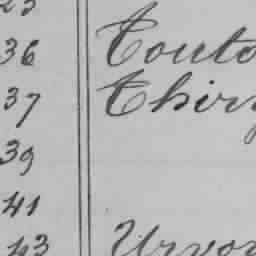 23
36 Couto
37 Chiry
39
41
43 Urvoy